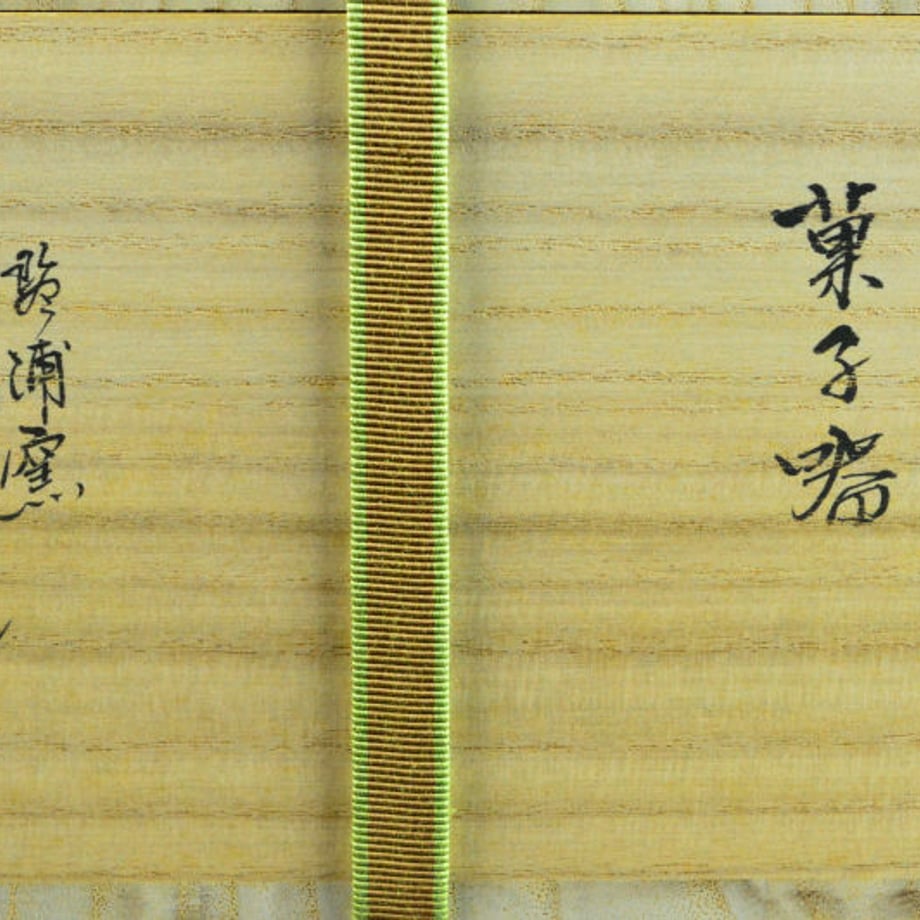 菓子器
浦窯